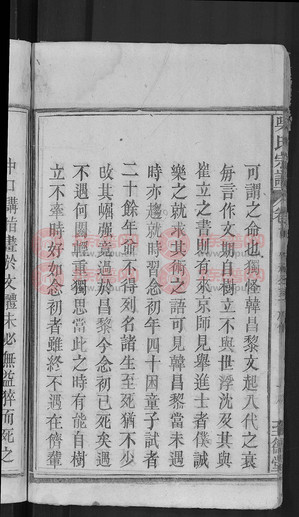 可謂之命也獨怪韓昌黎文起八代之衰
每言作文期自樹立不與世浮沈及其與
崔立之書則有來京師見舉進士者僕誠
樂之就求其術之語可見韓昌黎當未遇
時亦趨就時習念初年四十困童子試者
二十餘年命不得列名諸生至死猶不少
改其崛彊竟過於昌黎兮念初已死矣遇
不遇何關輕重獨思當此之時有能自樹
立不牽時好如念初者雖終不遇在儕輩
中口講指畫於文體未必無益猝而死之